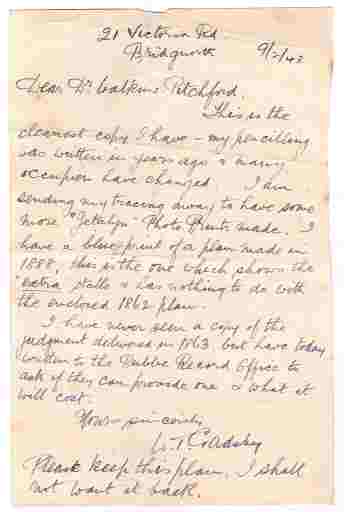 21 Victoria Rd
Bridgnorth
9/2/42
Dear Dr Watkins Pitchford.
This is the
clearest copy I have - my pencilling
was written in years ago & many
occupiers have changed. I am
sending my tracing away to have some
more "Jetalyn" Photo Prints made. I
have a blue print of a plan made in
1888, this is the one which shows the
extra stalls & has nothing to do with
the enclosed 1862 plan.
I have never seen a copy of the
judgment delivered in 1863, but have today
written to the Public Record Office to
ask if they can provide one & what it
will cost.
Yours sincerely
Please keep this plan, I shall
not want it back.